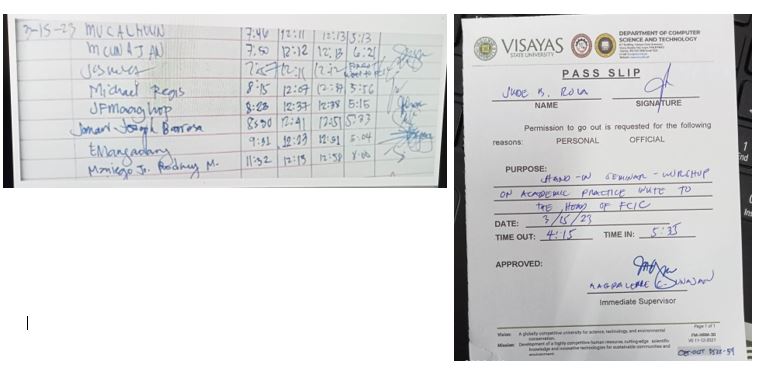 3-15-23 MUCALHOUN 7:46 12:11 12:13 5:13
MCUNAJAN 7:50 12:12 12:13 6:21
Michael Regis 8:15 12:07 12:37 5:56
JFmaaghop 8:23 12:37 12:38 5:15
Jomari Joseph Barrosa 8:30 12:41 12:51 5:33
EMangadang 9:31 12:23 12:31 5:04
Maniego Jr. Rodney M. 11:32 12:13 12:58
VISAYAS
STATE UNIVERSITY
DEPARTMENT OF COMPUTER
SCIENCE AND TECHNOLOGY
PASS SLIP
JUDE B. ROLA
NAME SIGNATURE
Permission to go out is requested for the following
reasons: PERSONAL OFFICIAL
PURPOSE:
HAND-IN SEMINAR-WORKSHOP
ON ACADEMIC PRACTICE INVITE TO
THE HEAD OF FCIC
DATE: 3/15/23
TIME OUT: 4:15 TIME IN: 5:35
APPROVED:
MAGDALENE C. UNAJAN
Immediate Supervisor
Page 1 of 1
Vision: A globally competitive university for science, technology, and environmental
conservation.
Mission: Development of a highly competitive human resource, cutting-edge scientific
knowledge and innovative technologies for sustainable communities and
environment.